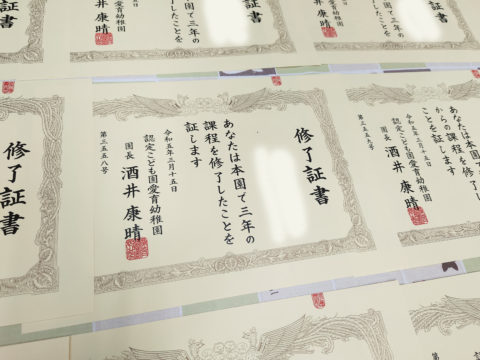 書
証書
三年の
了したことを
愛育幼稚園
井康晴
修了証書
修了証書
あなたは本園で三年の
課程を修了したことを
証します
令和五年三月十五日
認定こども園愛育幼稚園
園長 酒井康晴
第三五五八号
からの課程を修了し
ことを証します
令和五年三月十五日
認定こども園愛育幼稚園
園長 酒井康晴
第三五五九号